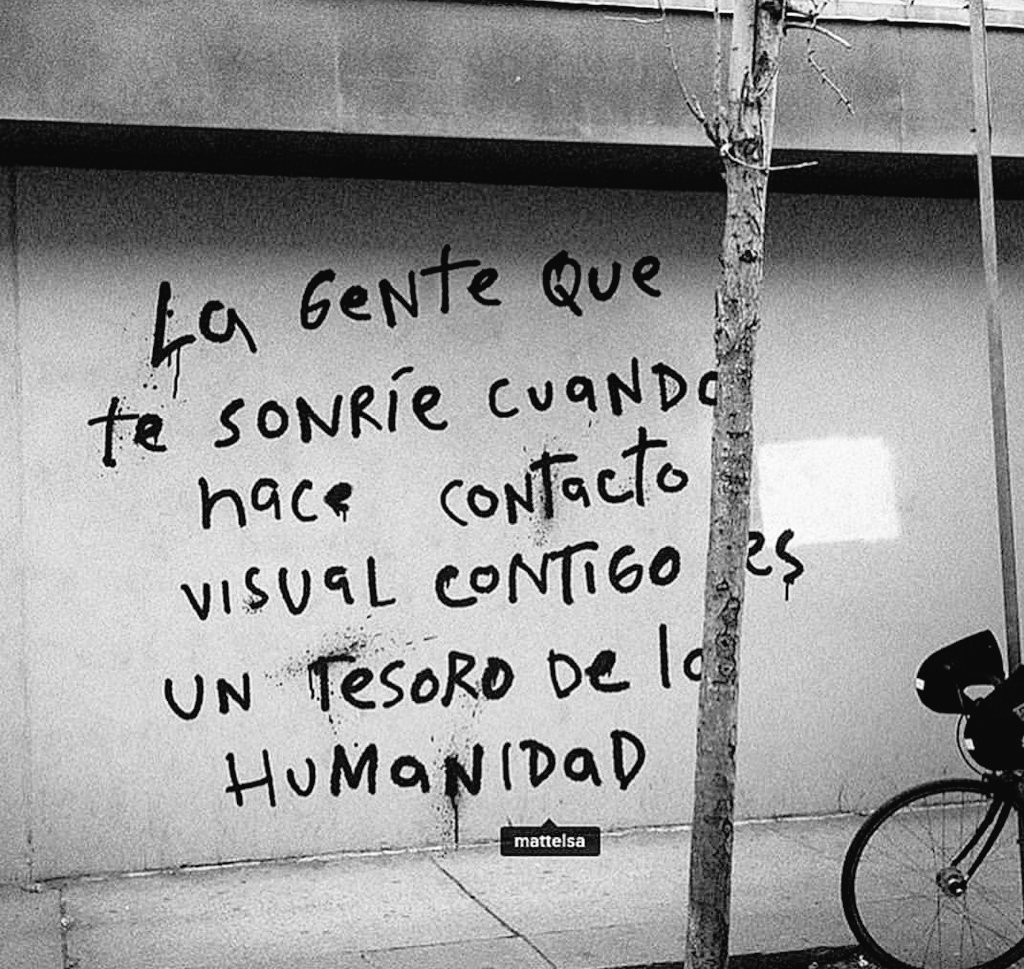 La gente que
te sonríe cuando
hace contacto
visual contigo es
un tesoro de la
humanidad
mattelsa